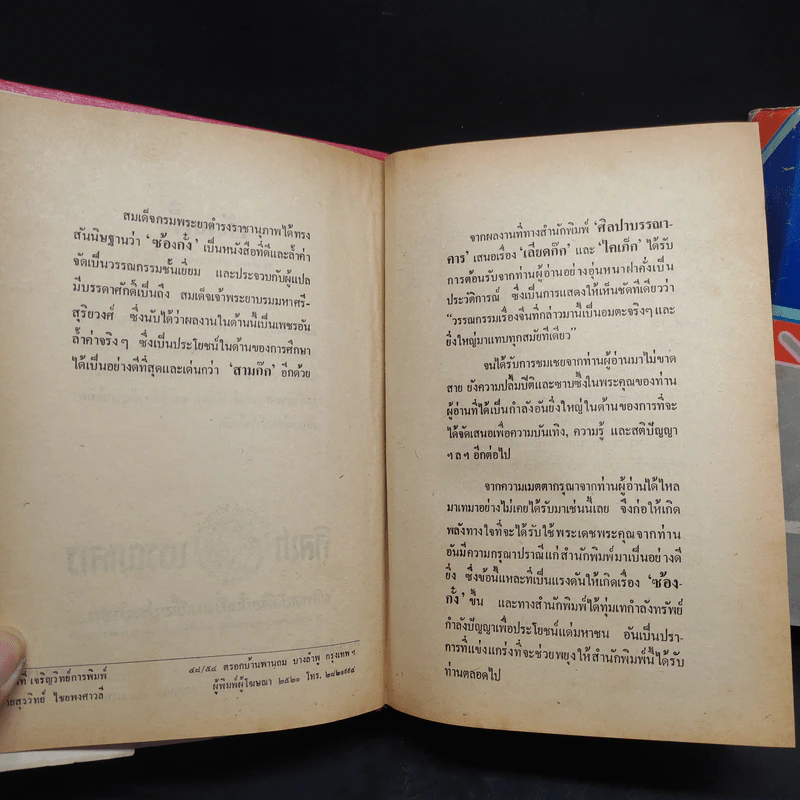 สมเด็จกรมพระยาดำรงราชานุภาพได้ทรง
สันนิษฐานว่า ‘ซ้องกั๋ง’ เป็นหนังสือที่ดีและล้ำค่า
จัดเป็นวรรณกรรมชั้นเยี่ยม และประจวบกับผู้แปล
มีบรรดาศักดิ์เป็นถึง สมเด็จเจ้าพระยาบรมมหาศรี-
สุริยวงศ์ ซึ่งนับได้ว่าผลงานในด้านนี้เป็นเพชรอัน
ล้ำค่าจริงๆ ซึ่งเป็นประโยชน์ในด้านของการศึกษา
ได้เป็นอย่างดีที่สุดและเด่นกว่า ‘สามก๊ก’ อีกด้วย
๔๘/๕๔ ตรอกบ้านพานถม บางลำพู กรุงเทพฯ
ที่ เจริญวิทย์การพิมพ์
ผู้พิมพ์ผู้โฆษณา ๒๕๒๐ โทร.
ายสุรวิทย์ ไชยพงศาวลี
จากผลงานที่ทางสำนักพิมพ์ ‘ศิลปาบรรณา-
คาร’ เสนอเรื่อง ‘เลียดก๊ก’ และ ‘ไคเภ็ก’ ได้รับ
การต้อนรับจากท่านผู้อ่านอย่างอุ่นหนาฝาคั่งเป็น
ประวัติการณ์ ซึ่งเป็นการแสดงให้เห็นชัดทีเดียวว่า
“วรรณกรรมเรื่องจีนที่กล่าวมานี้เป็นอมตะจริงๆ และ
ยิ่งใหญ่มาแทบทุกสมัยทีเดียว”
จนได้รับการชมเชยจากท่านผู้อ่านมาไม่ขาด
สาย ยังความปลื้มปีติและซาบซึ้งในพระคุณของท่าน
ผู้อ่านที่ได้เป็นกำลังอันยิ่งใหญ่ในด้านของการที่จะ
ได้จัดเสนอเพื่อความบันเทิง, ความรู้ และสติปัญญา
ฯลฯ อีกต่อไป
จากความเมตตากรุณาจากท่านผู้อ่านได้ไหล
มาเทมาอย่างไม่เคยได้รับมาเช่นนี้เลย จึงก่อให้เกิด
พลังทางใจที่จะได้รับใช้พระเดชพระคุณจากท่าน
อันมีความกรุณาปราณีแก่สำนักพิมพ์มาเป็นอย่างดี
ยิ่ง ซึ่งข้อนี้แหละที่เป็นแรงดันให้เกิดเรื่อง ‘ซ้อง-
กั๋ง’ ขึ้น และทางสำนักพิมพ์ได้ทุ่มเทกำลังทรัพย์
กำลังปัญญาเพื่อประโยชน์แด่มหาชน อันเป็นปรา-
การที่แข็งแกร่งที่จะช่วยพยุงให้สำนักพิมพ์นี้ได้รับ
ท่านตลอดไป